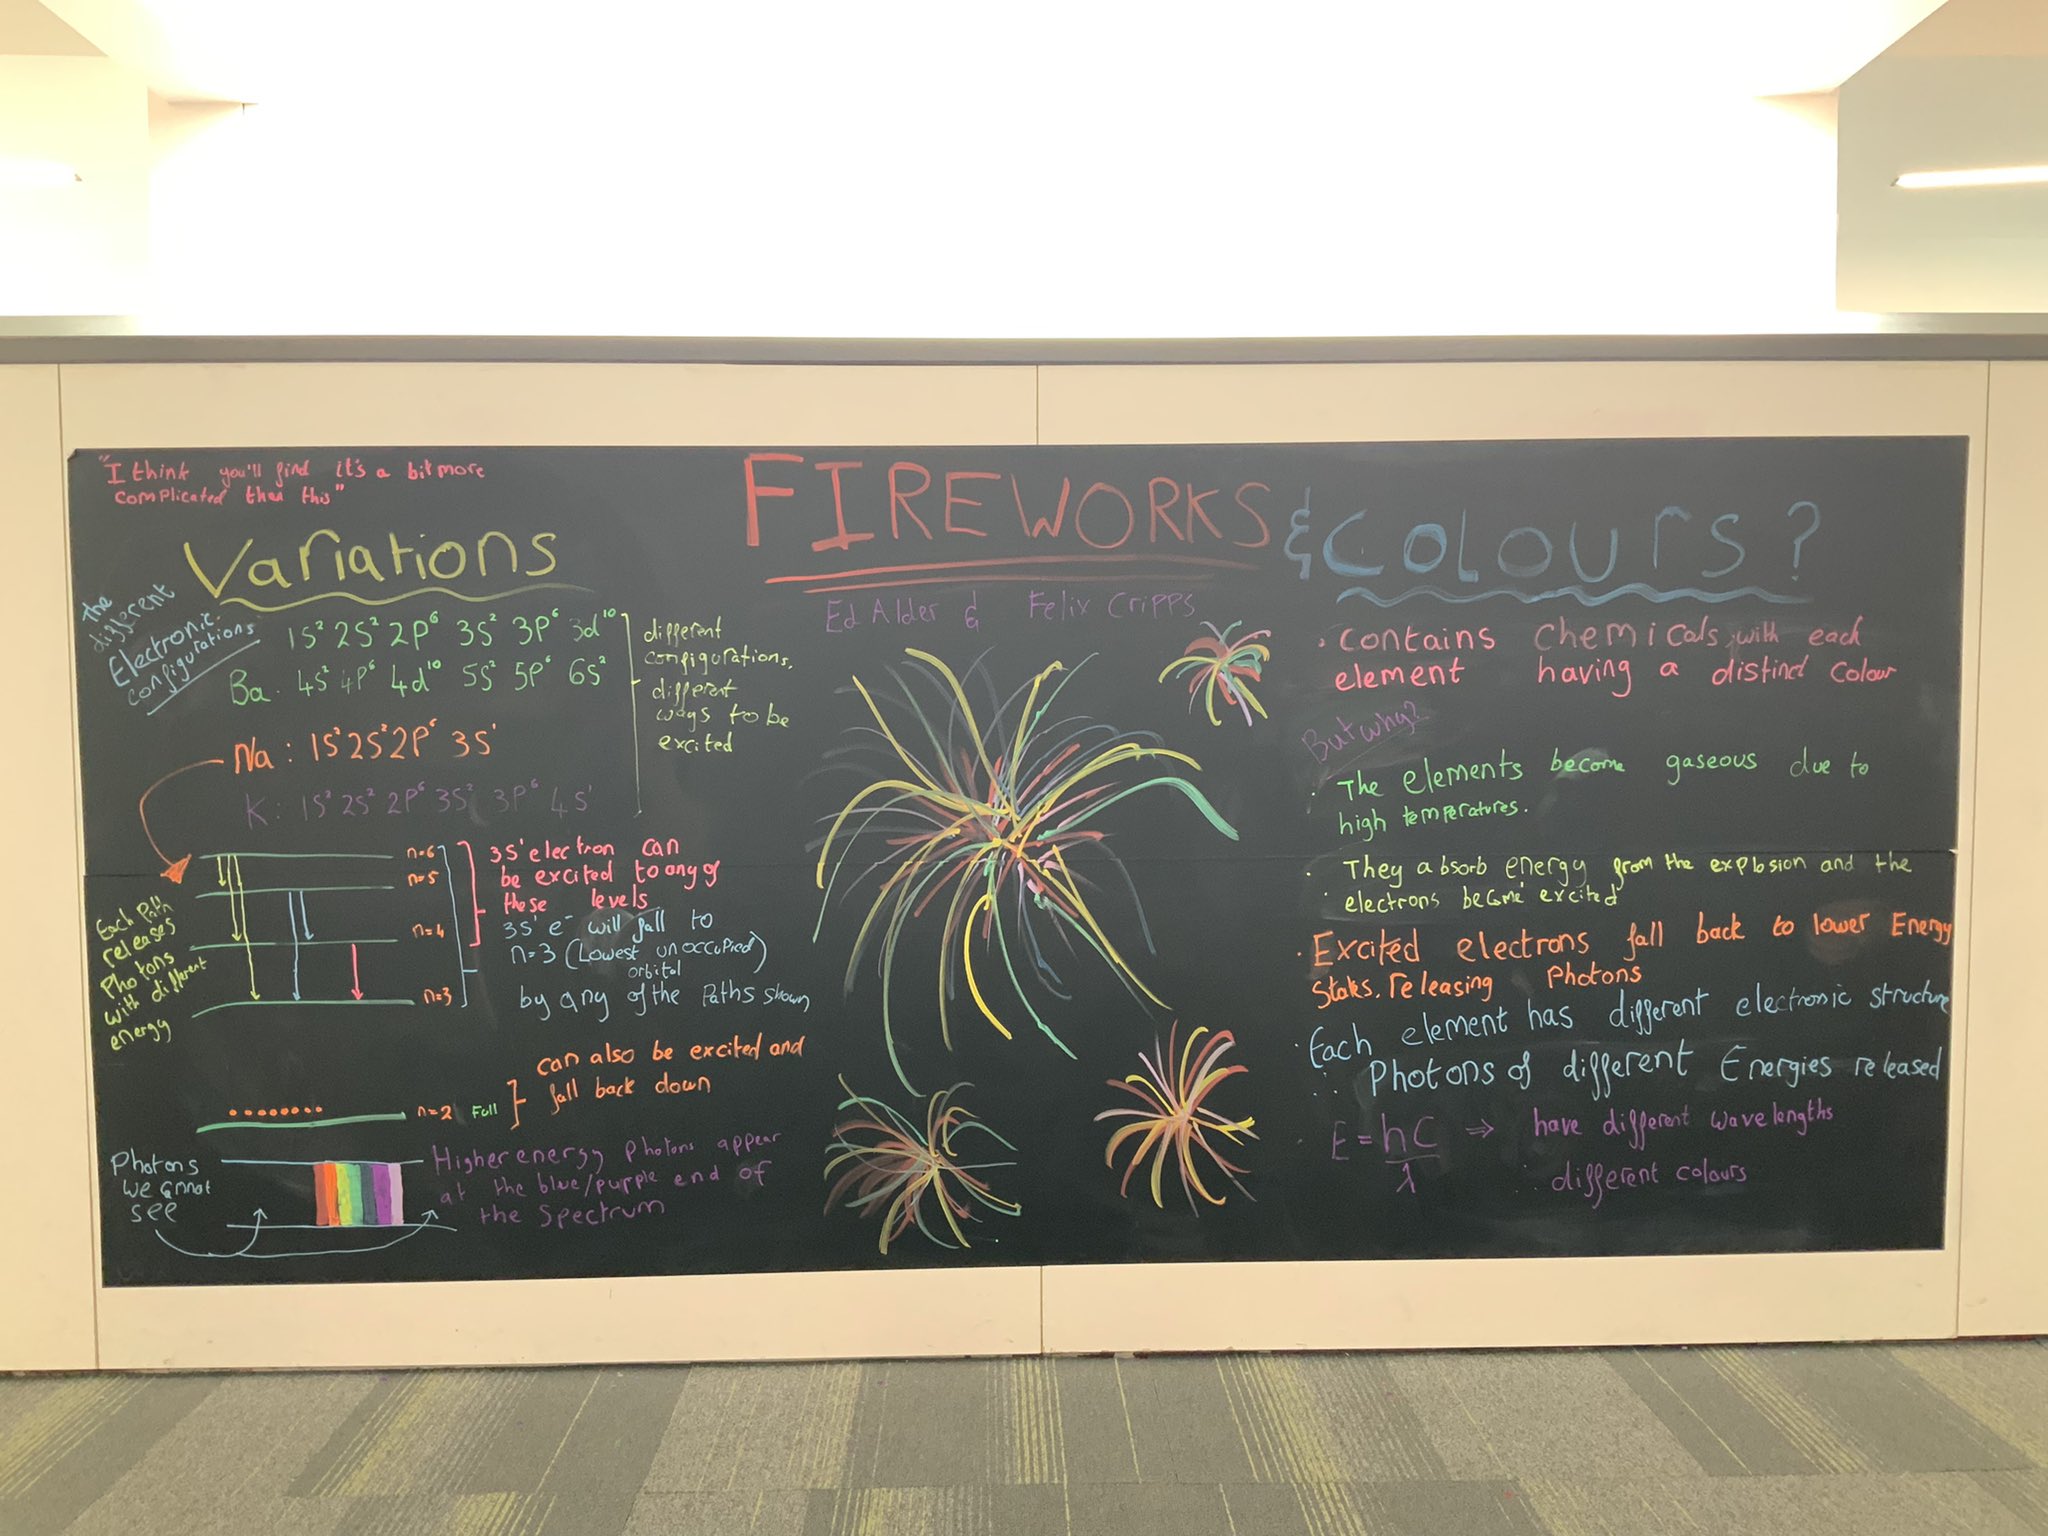 "I think you'll find it's a bit more
complicated than this"
Variations
The
different
Electronic
configurations
1S² 2S² 2P⁶ 3S² 3P⁶ 3d¹⁰
Ba. 4S² 4P⁶ 4d¹⁰ 5S² 5P⁶ 6S²
different
configurations,
different
ways to be
excited
Na: 1S² 2S² 2P⁶ 3S¹
K: 1S² 2S² 2P⁶ 3S² 3P⁶ 4S¹
n=6
n=5
n=4
n=3
3S¹ electron can
be excited to any of
these levels
3S¹ e⁻ will fall to
n=3 (Lowest unoccupied)
orbital
by any of the Paths shown
Each Path
releases
Photons
with different
energy
n=2 Full
can also be excited and
fall back down
Photons
we cannot
see
Higher energy photons appear
at the blue/purple end of
the Spectrum
FIREWORKS
& COLOURS?
Ed Alder & Felix Cripps
• Contains chemicals with each
element having a distinct colour
But why?
• The elements become gaseous due to
high temperatures.
• They absorb energy from the explosion and the
electrons become excited
• Excited electrons fall back to lower Energy
States, releasing Photons
• Each element has different electronic structure
∴ Photons of different Energies released
• E = hc/λ ⇒ have different wavelengths
∴ different colours